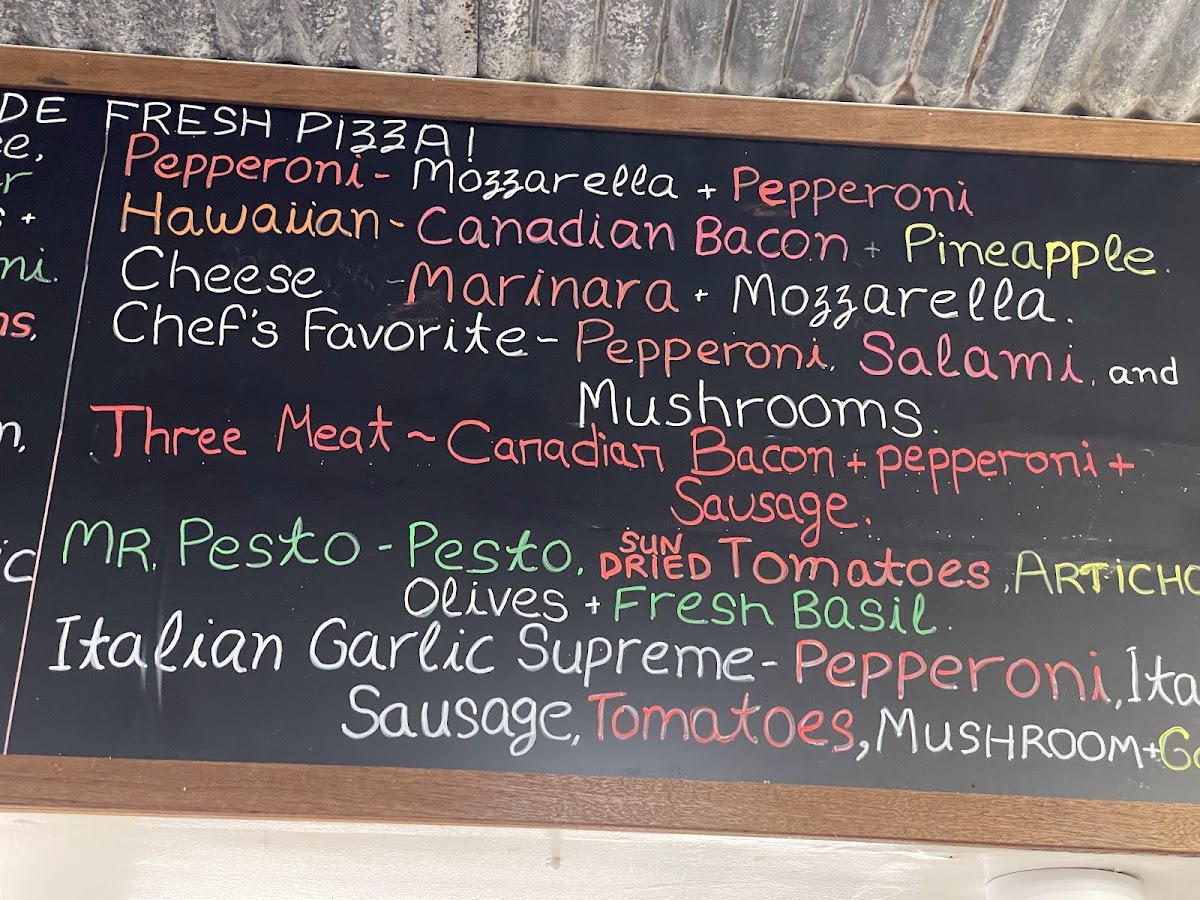 DE
FRESH PIZZA!
Pepperoni - Mozzarella + Pepperoni
Hawaiian - Canadian Bacon + Pineapple.
Cheese - Marinara + Mozzarella.
Chef's Favorite - Pepperoni, Salami, and
Mushrooms.
Three Meat ~ Canadian Bacon + pepperoni +
Sausage.
MR. Pesto - Pesto, SUN DRIED Tomatoes, ARTICHO
Olives + Fresh Basil.
Italian Garlic Supreme - Pepperoni, Ita
Sausage, Tomatoes, MUSHROOM + G